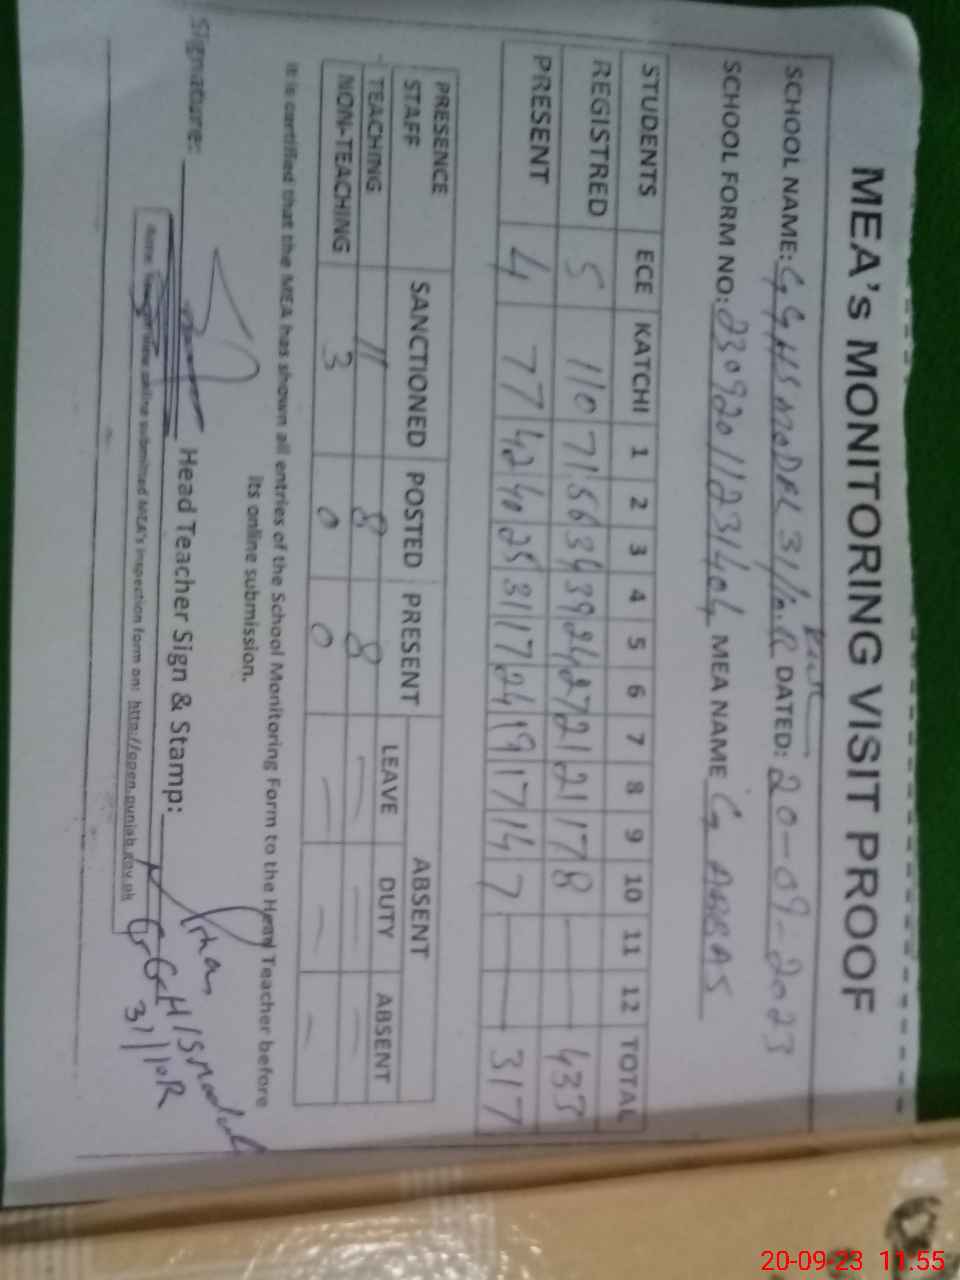 MEA's MONITORING VISIT PROOF
SCHOOL NAME: GGHS MODEL 31/10.R DATED: 20-09-2023
SCHOOL FORM NO: MEA NAME G ABBAS
STUDENTS ECE KATCHI 1 2 3 4 5 6 7 8 9 10 11 12 TOTAL
REGISTRED 5 110 71 56 34 39 24 27 21 21 17 8 — — 433
PRESENT 4 77 42 40 25 31 17 24 19 17 14 7 — — 317
PRESENCE SANCTIONED POSTED PRESENT ABSENT
STAFF LEAVE DUTY ABSENT
TEACHING 11 8 8 — — —
NON-TEACHING 3 0 0 — — —
It is certified that the MEA has shown all entries of the School Monitoring Form to the Head Teacher before
its online submission.
Signature: Head Teacher Sign & Stamp:
view online submitted MEA's inspection form on: http://open.punjab.gov.pk
GGH/S Model
31/10R
20-09-23 11.55